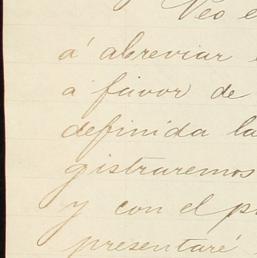 Veo
á abreviar
a favor de
definida la
gistraremos
y con el
presentaré